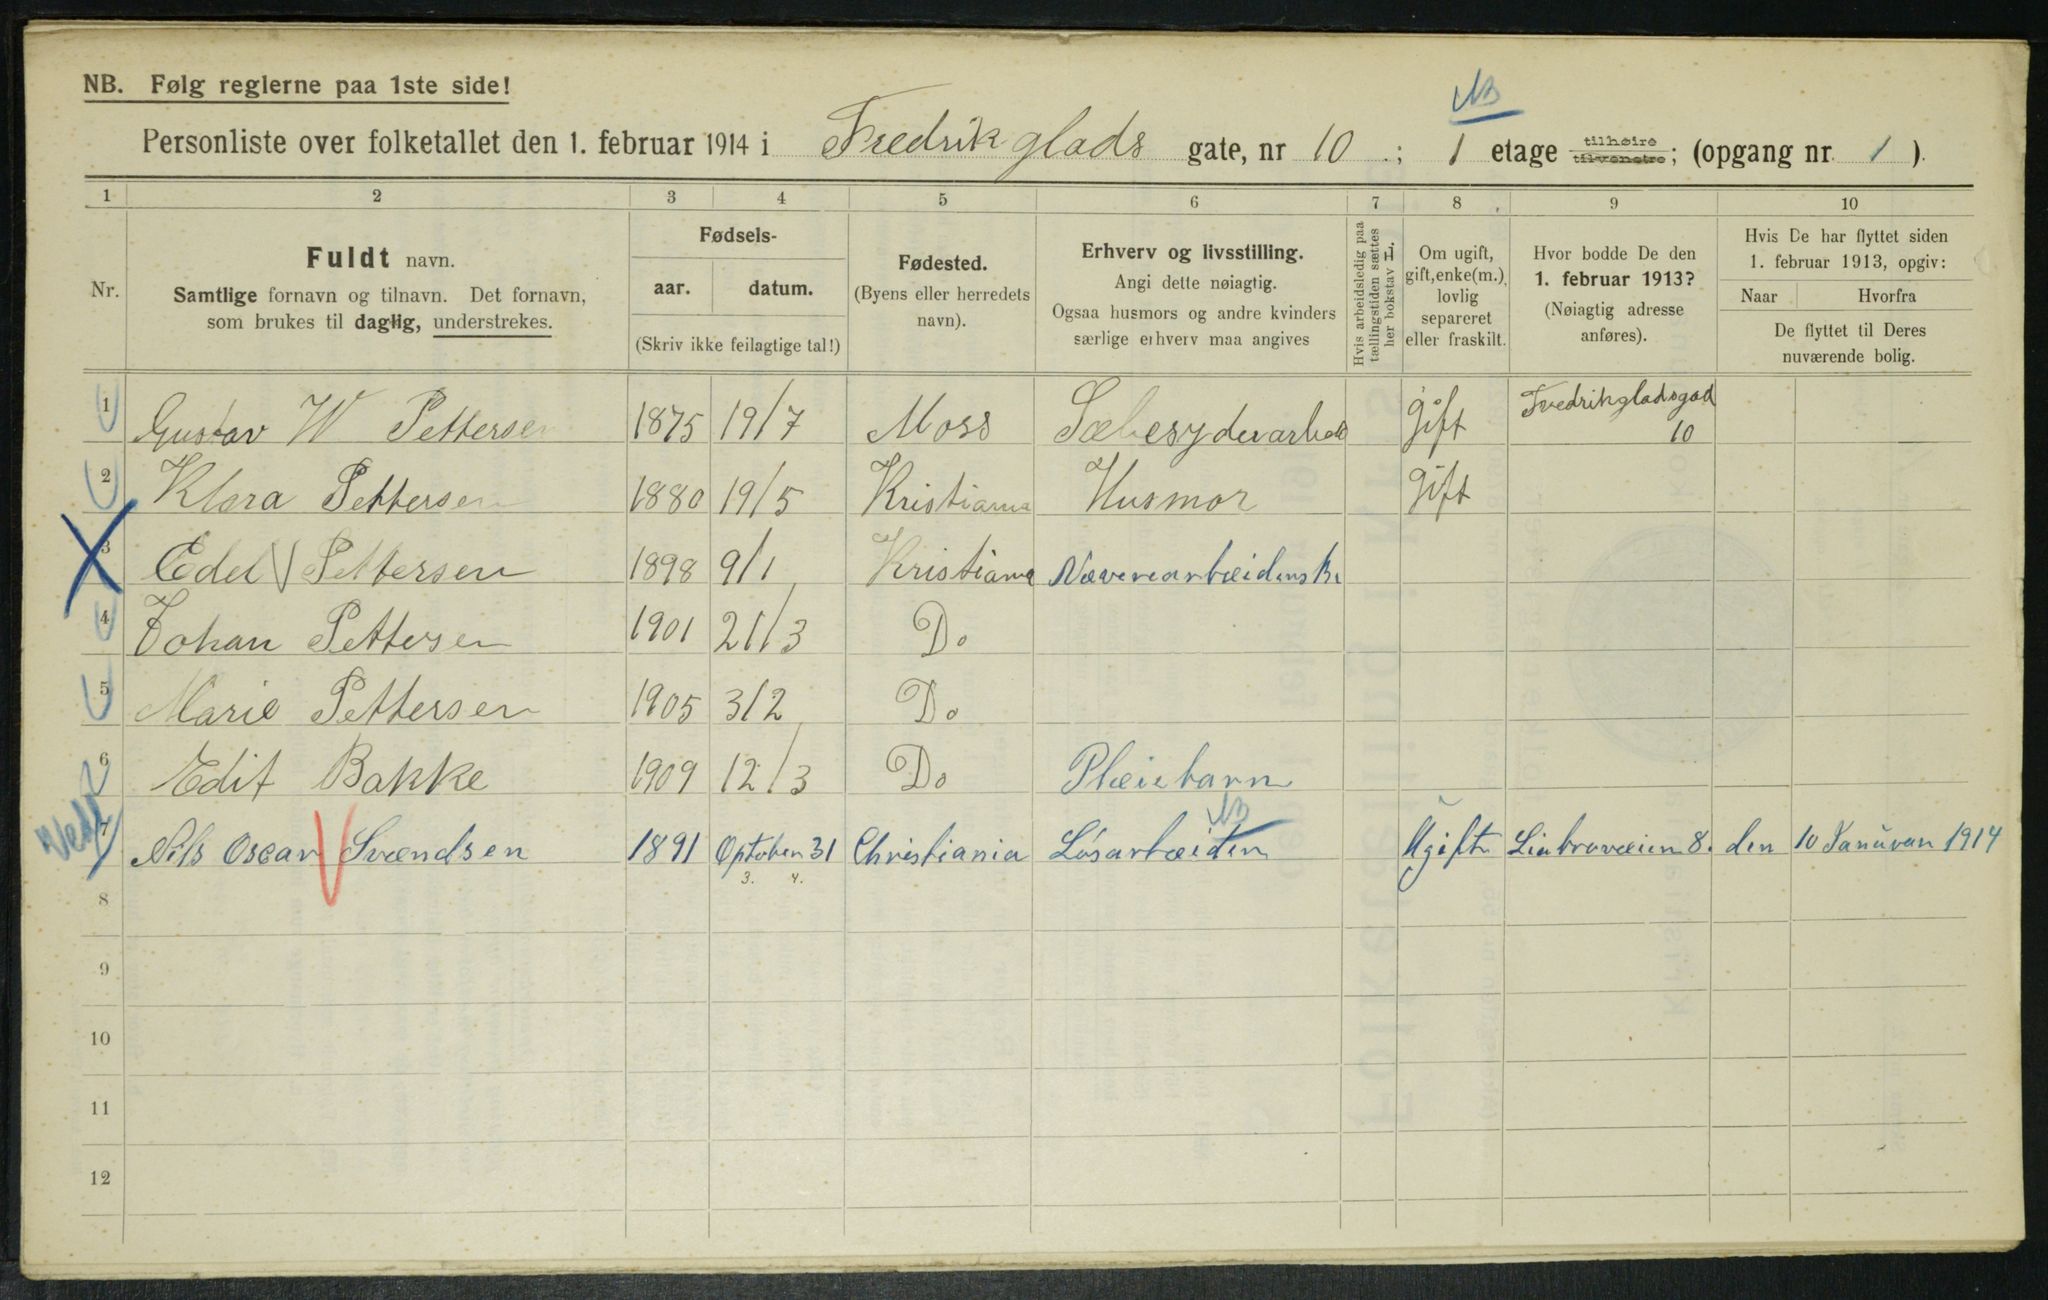 NB. Følg reglerne paa 1ste side!
NB
Personliste over folketallet den 1. februar 1914 i Fredrik glads gate, nr 10 ; 1 etage tilhøire tilvenstre; (opgang nr. 1 ).
1 2 3 4 5 6 7 8 9 10
Nr.
Fuldt navn.
Samtlige fornavn og tilnavn. Det fornavn,
som brukes til daglig, understrekes.
Fødsels-
aar. datum.
(Skriv ikke feilagtige tal!)
Fødested.
(Byens eller herredets
navn).
Erhverv og livsstilling.
Angi dette nøiagtig.
Ogsaa husmors og andre kvinders
særlige erhverv maa angives
Hvis arbeidsledig paa
tællingstiden sættes
her bokstav L.
Om ugift,
gift, enke(m.),
lovlig
separeret
eller fraskilt.
Hvor bodde De den
1. februar 1913?
(Nøiagtig adresse
anføres).
Hvis De har flyttet siden
1. februar 1913, opgiv:
Naar Hvorfra
De flyttet til Deres
nuværende bolig.
1 Gustav W Pettersen 1875 19/7 Moss Sæbesyderarbeid gift Fredrikgladsgad 10
2 Klara Pettersen 1880 19/5 Kristiania Husmor gift
3 Edel Pettersen 1898 9/1 Kristiania
4 Johan Pettersen 1901 21/3 Do
5 Marie Pettersen 1905 3/2 Do
6 Edit Bakke 1909 12/3 Do Pleiebarn
NB
7 Nils Oscar Svendsen 1891 Optober 31 Christiania Løsarbeider Ugift Liabroveien 8. den 10 Januvar 1914
3. 4.
8
9
10
11
12